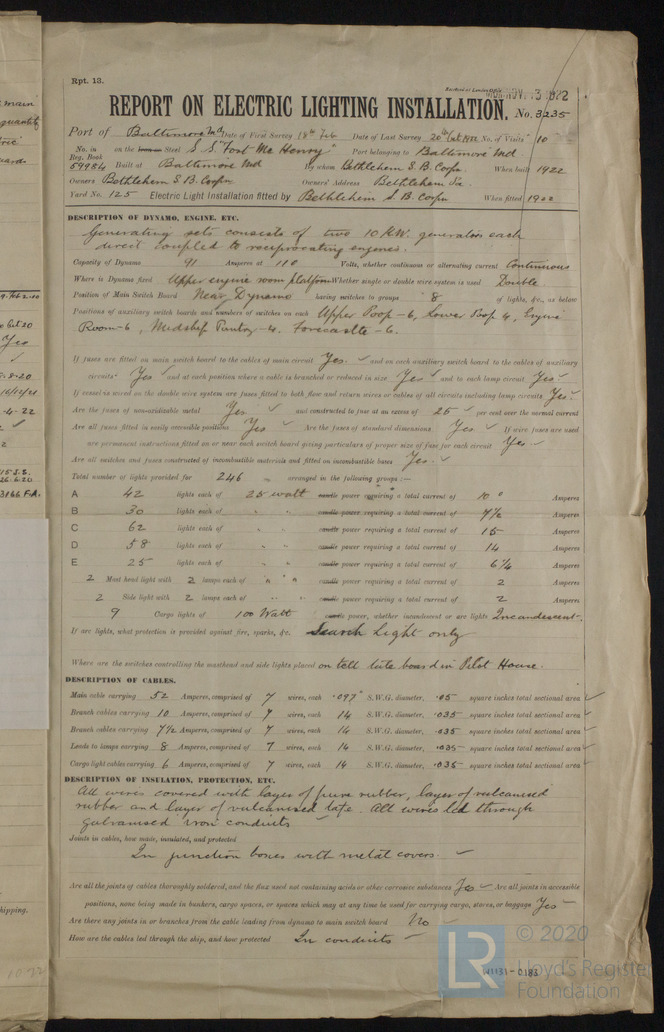 main
quantity
Rpt. 13.
Received at London Office
MON. NOV. 13 1922
REPORT ON ELECTRIC LIGHTING INSTALLATION. No. 3235
Port of Baltimore Md Date of First Survey 18th Feb Date of Last Survey 20th Oct 1922 No. of Visits 10
No. in Reg. Book 59984 on the Iron or Steel S S "Fort Mc Henry" Port belonging to Baltimore Md
Built at Baltimore Md By whom Bethlehem S. B. Corpn. When built 1922
Owners Bethlehem S. B. Corpn. Owners' Address Bethlehem Pa.
Yard No. 125 Electric Light Installation fitted by Bethlehem S. B. Corpn When fitted 1922
DESCRIPTION OF DYNAMO, ENGINE, ETC.
Generating sets consists of two 10 KW. generators each
direct coupled to reciprocating engines.
Capacity of Dynamo 91 Amperes at 110 Volts, whether continuous or alternating current Continuous
Where is Dynamo fixed Upper engine room platform Whether single or double wire system is used Double
Position of Main Switch Board Near Dynamo having switches to groups 8 of lights, &c., as below
Positions of auxiliary switch boards and numbers of switches on each Upper Poop - 6, Lower Poop 4, Engine
Room - 6, Midship Pantry - 4. Forecastle - 6.
If fuses are fitted on main switch board to the cables of main circuit Yes. ✓ and on each auxiliary switch board to the cables of auxiliary
circuits Yes ✓ and at each position where a cable is branched or reduced in size Yes ✓ and to each lamp circuit Yes ✓
If vessel is wired on the double wire system are fuses fitted to both flow and return wires or cables of all circuits including lamp circuits Yes ✓
Are the fuses of non-oxidizable metal Yes ✓ and constructed to fuse at an excess of 25 ✓ per cent over the normal current
Are all fuses fitted in easily accessible positions Yes ✓ Are the fuses of standard dimensions Yes ✓ If wire fuses are used
are permanent instructions fitted on or near each switch board giving particulars of proper size of fuse for each circuit Yes ✓
Are all switches and fuses constructed of incombustible materials and fitted on incombustible bases Yes. ✓
Total number of lights provided for 246 arranged in the following groups :—
A 42 lights each of 25 watt candle power requiring a total current of 10 Amperes
B 30 lights each of " " candle power requiring a total current of 7½ Amperes
C 62 lights each of " " candle power requiring a total current of 15 Amperes
D 58 lights each of " " candle power requiring a total current of 14 Amperes
E 25 lights each of " " candle power requiring a total current of 6¼ Amperes
2 Mast head light with 2 lamps each of " " candle power requiring a total current of 2 Amperes
2 Side light with 2 lamps each of " " candle power requiring a total current of 2 Amperes
9 Cargo lights of 100 Watt candle power, whether incandescent or arc lights Incandescent.
If arc lights, what protection is provided against fire, sparks, &c. Search Light only
Where are the switches controlling the masthead and side lights placed on tell tale board in Pilot House.
DESCRIPTION OF CABLES.
Main cable carrying 52 Amperes, comprised of 7 wires, each .097" S.W.G. diameter, .05 square inches total sectional area ✓
Branch cables carrying 10 Amperes, comprised of 7 wires, each 14 S.W.G. diameter, .035 square inches total sectional area ✓
Branch cables carrying 7½ Amperes, comprised of 7 wires, each 14 S.W.G. diameter, .035 square inches total sectional area ✓
Leads to lamps carrying 8 Amperes, comprised of 7 wires, each 14 S.W.G. diameter, .035 square inches total sectional area ✓
Cargo light cables carrying 6 Amperes, comprised of 7 wires, each 14 S.W.G. diameter, .035 square inches total sectional area ✓
DESCRIPTION OF INSULATION, PROTECTION, ETC.
All wires covered with layer of pure rubber, layer of vulcanised
rubber and layer of vulcanised tape. All wires led through
galvanised iron conduits ✓
Joints in cables, how made, insulated, and protected
In junction boxes with metal covers. ✓
Are all the joints of cables thoroughly soldered, and the flux used not containing acids or other corrosive substances Yes ✓ Are all joints in accessible
positions, none being made in bunkers, cargo spaces, or spaces which may at any time be used for carrying cargo, stores, or baggage Yes
Are there any joints in or branches from the cable leading from dynamo to main switch board No ✓
How are the cables led through the ship, and how protected In conduits
hipping.
W1131-0183
LR
© 2020
Lloyd's Register
Foundation